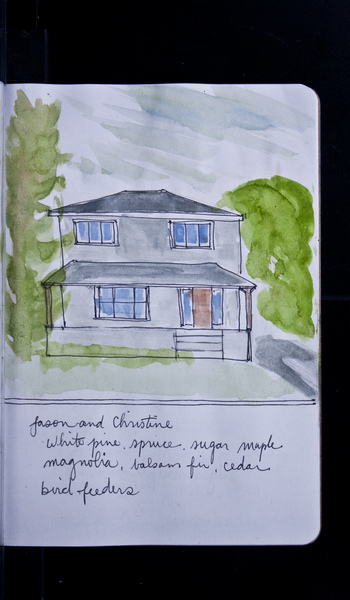 Jason and Christine
white pine, spruce, sugar maple
magnolia, balsam fir, cedar
bird feeders